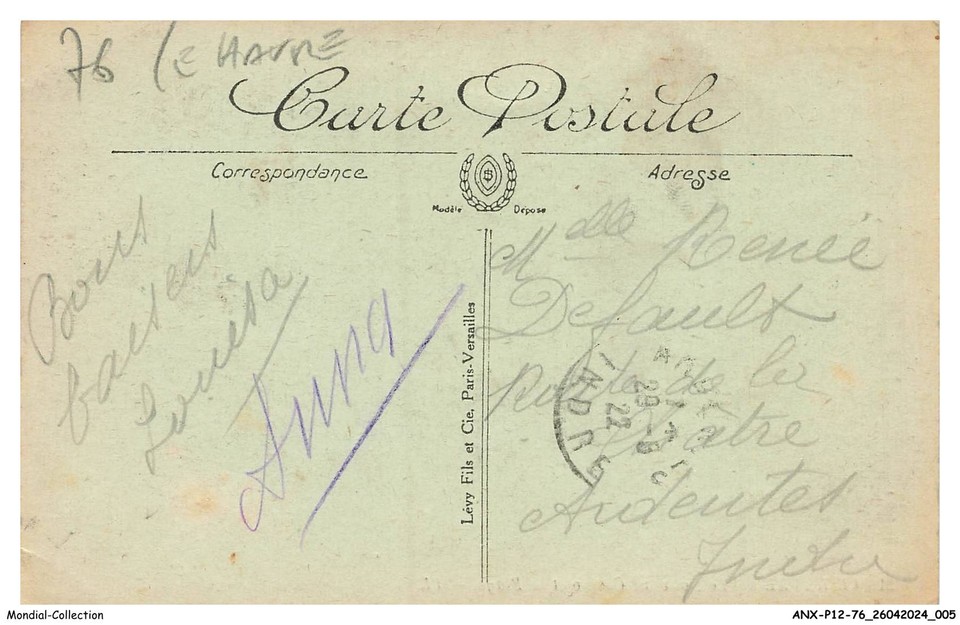 76 LE HAVRE
Carte Postale
Correspondance
Adresse
$
Modèle Déposé
Bons
baisers
Louisa
Anna
Lévy Fils et Cie, Paris-Versailles
Mlle Renée
Default
Route de la
Châtre
Ardentes
Indre
29
22
INDRE
Mondial-Collection
ANX-P12-76_26042024_005